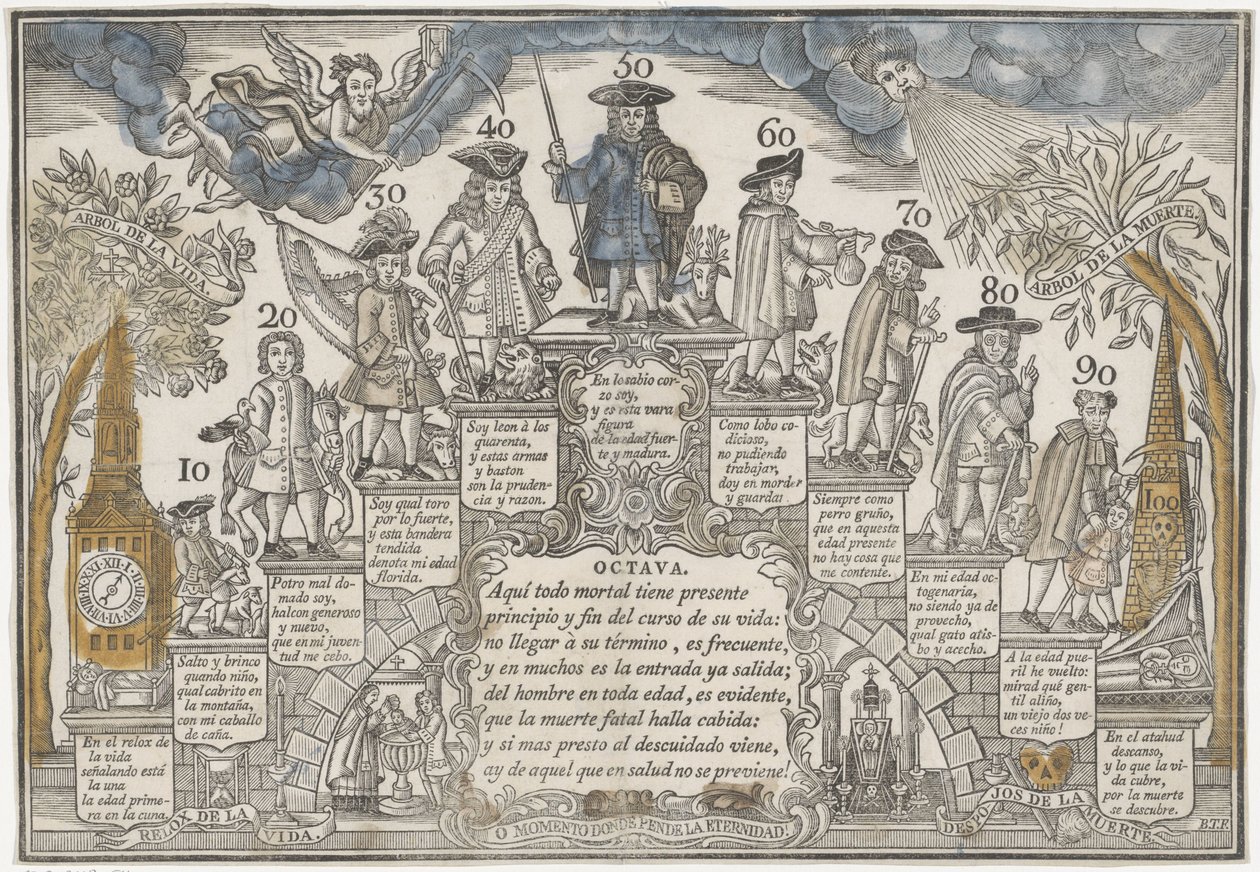 50
40
60
30
70
ARBOL DE LA VIDA.
ARBOL DE LA MUERTE.
20
80
90
10
100
XII
En lo sabio cor-
zo soy,
y es esta vara
figura
de la edad fuer-
te y madura.
Soy leon à los
quarenta,
y estas armas
y baston
son la pruden-
cia y razon.
Como lobo co-
dicioso,
no pudiendo
trabajar,
doy en morder
y guardar.
Soy qual toro
por lo fuerte,
y esta bandera
tendida
denota mi edad
florida.
Siempre como
perro gruño,
que en aquesta
edad presente
no hay cosa que
me contente.
Potro mal do-
mado soy,
halcon generoso
y nuevo,
que en mi juven-
tud me cebo.
En mi edad oc-
togenaria,
no siendo ya de
provecho,
qual gato atis-
bo y acecho.
Salto y brinco
quando niño,
qual cabrito en
la montaña,
con mi caballo
de caña.
A la edad pue-
ril he vuelto:
mirad qué gen-
til aliño,
un viejo dos ve-
ces niño!
En el relox de
la vida
señalando está
la una
la edad prime-
ra en la cuna.
En el atahud
descanso,
y lo que la vi-
da cubre,
por la muerte
se descubre.
OCTAVA.
Aquí todo mortal tiene presente
principio y fin del curso de su vida:
no llegar à su término, es frecuente,
y en muchos es la entrada ya salida;
del hombre en toda edad, es evidente,
que la muerte fatal halla cabida:
y si mas presto al descuidado viene,
ay de aquel que en salud no se previene!
RELOX DE LA VIDA.
O MOMENTO DONDE PENDE LA ETERNIDAD!
DESPOJOS DE LA MUERTE
B.T.F.